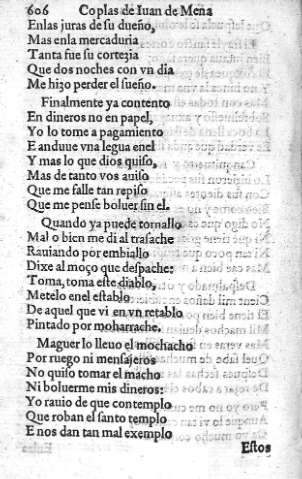 606 Coplas de Iuan de Mena
Enlas juras de su dueño,
Mas enla mercaduria
Tanta fue su cortezia
Que dos noches con vn dia
Me hizo perder el sueño.
Finalmente ya contento
En dineros no en papel,
Yo lo tome a pagamiento
E anduue vna legua enel
Y mas lo que dios quiso,
Mas de tanto vos auiso
Que me falle tan repiso
Que me pense boluer sin el.
Quando ya puede tornallo
Mal o bien me di al trasache
Rauiando por embiallo
Dixe al moço que despache:
Toma, toma este diablo,
Metelo enel establo
De aquel que vi en vn retablo
Pintado por moharrache.
Maguer lo lleuo el mochacho
Por ruego ni mensajeros
No quiso tomar el macho
Ni boluerme mis dineros:
Yo rauio de que contemplo
Que roban el santo templo
E nos dan tan mal exemplo
Estos